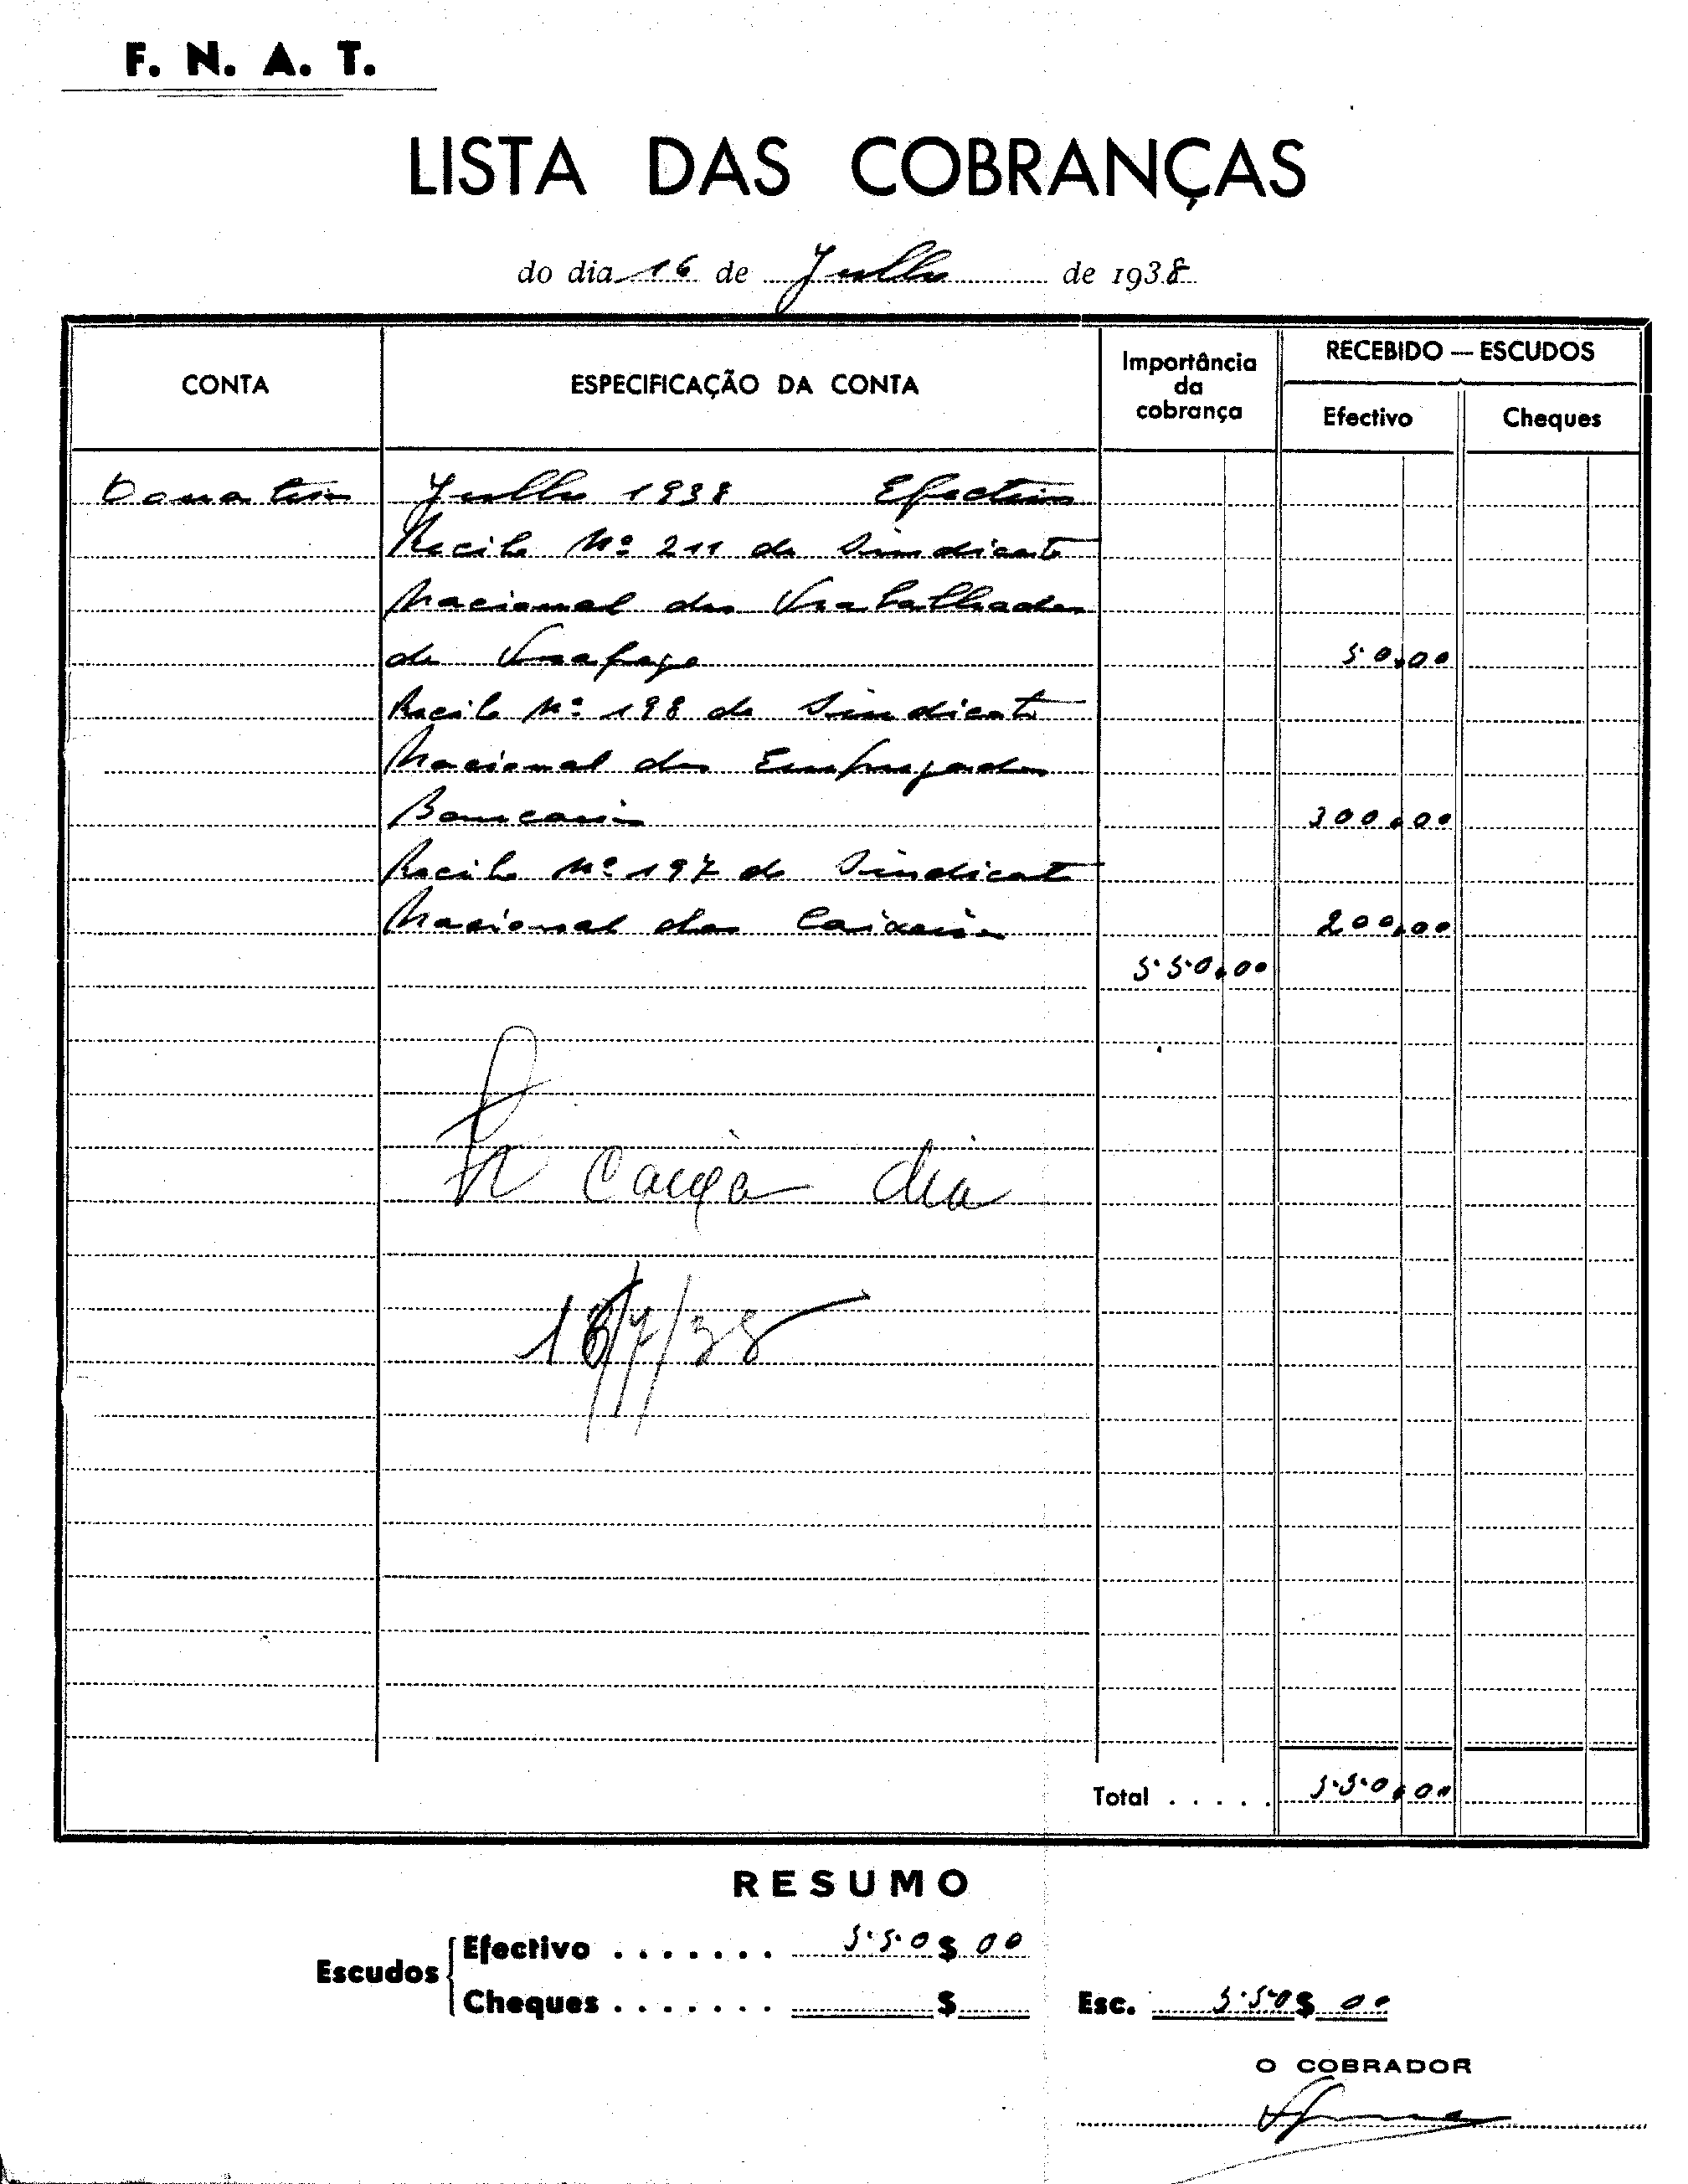 F. N. A. T.
LISTA DAS COBRANÇAS
do dia 16 de Julho de 1938
CONTA
ESPECIFICAÇÃO DA CONTA
Importância
da
cobrança
RECEBIDO — ESCUDOS
Efectivo
Cheques
Donativos Julho 1938 Efectivos
Recibo Nº 211 do Sindicato
Nacional dos Trabalhadores
do Trafego 50,00
Recibo Nº 198 do Sindicato
Nacional dos Empregados
Bancarios 300,00
Recibo Nº 197 do Sindicato
Nacional dos Caixeiros 200,00
550,00
Caixa dia
18/7/38
Total . . . . . 550,00
RESUMO
Escudos
Efectivo . . . . . . . 550$00
Cheques . . . . . . . $
Esc. 550$00
O COBRADOR